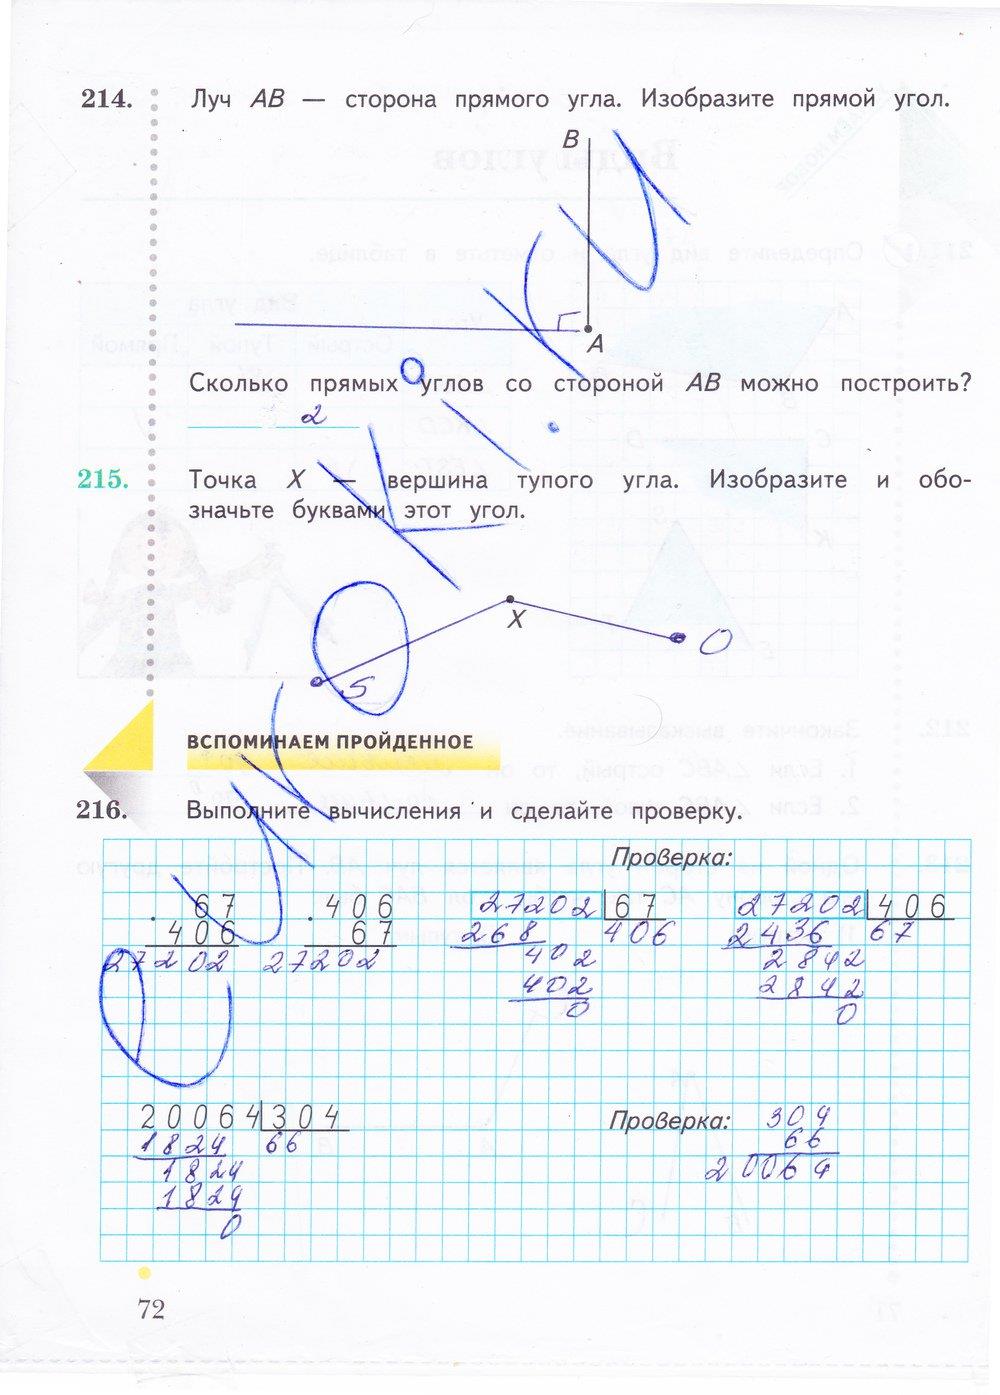 214. Луч AB — сторона прямого угла. Изобразите прямой угол.
B
A
Сколько прямых углов со стороной AB можно построить?
2
215. Точка X — вершина тупого угла. Изобразите и обо-
значьте буквами этот угол.
X
O
S
ВСПОМИНАЕМ ПРОЙДЕННОЕ
216. Выполните вычисления и сделайте проверку.
Проверка:
. 67 . 406 27202 67 27202 406
406 67 268 406 2436 67
27202 27202 402 2842
402 2842
0 0
20064 304 Проверка: 304
1824 66 66
1824 20064
1824
0
72